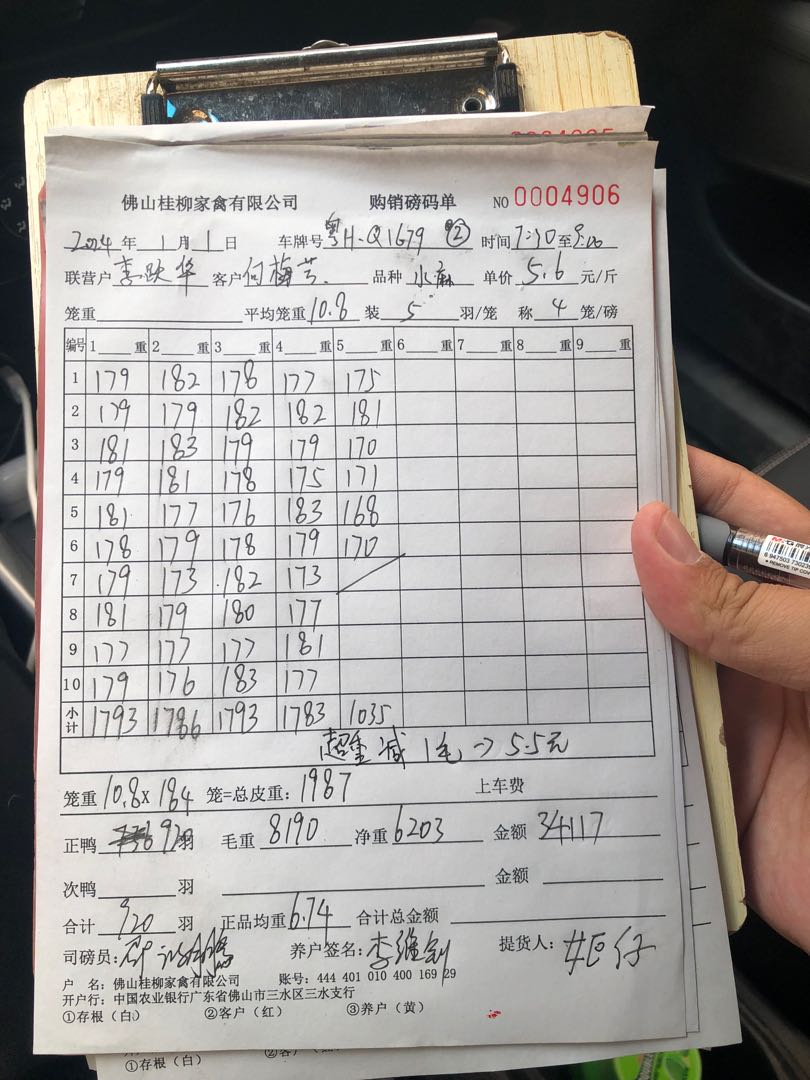 佛山桂柳家禽有限公司 购销磅码单 NO 0004906
2024年 1月 1日 车牌号 粤H·Q1679 ② 时间 7:30至9:00
联营户 李跃华 客户 何梅芳 品种 水麻 单价 5.6 元/斤
笼重 平均笼重 10.8 装 5 羽/笼 称 4 笼/磅
编号 1 重 2 重 3 重 4 重 5 重 6 重 7 重 8 重 9 重
1 179 182 178 177 175
2 179 179 182 182 181
3 181 183 179 179 170
4 179 181 178 175 171
5 181 177 176 183 168
6 178 179 178 179 170
7 179 173 182 173
8 181 179 180 177
9 177 177 177 181
10 179 176 183 177
小计 1793 1786 1793 1783 1035
超重减1毛→5.5元
笼重 10.8×184 笼=总皮重: 1987 上车费
正鸭 920羽 毛重 8190 净重 6203 金额 34117
次鸭 羽 金额
合计 920 羽 正品均重 6.74 合计总金额
司磅员: 养户签名: 李维剑 提货人:
户 名: 佛山桂柳家禽有限公司 账号: 444 401 010 400 169 29
开户行: 中国农业银行广东省佛山市三水区三水支行
①存根(白) ②客户(红) ③养户(黄)
①存根(白) ②客户